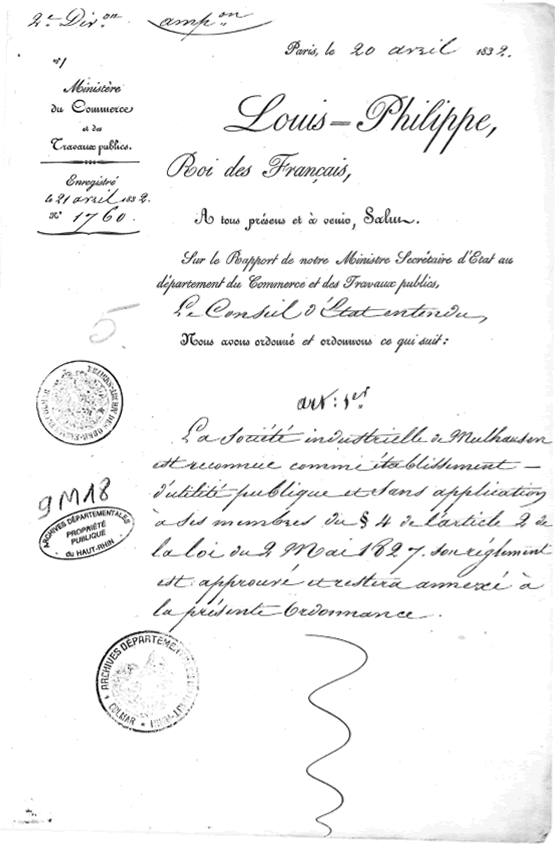 2e Divon ampon
Paris, le 20 avril 1832.
N° 1
Ministère
du Commerce
et des
Travaux publics.
Enregistré
le 21 avril 1832.
N° 1760.
Louis-Philippe,
Roi des Français,
A tous présens et à venir, Salut.
Sur le Rapport de notre Ministre Secrétaire d'Etat au
département du Commerce et des Travaux publics,
Le Conseil d'État entendu,
Nous avons ordonné et ordonnons ce qui suit:
5
art: 1er
La société industrielle de Mulhausen
est reconnue comme établissement
d'utilité publique et sans application
à ses membres du § 4 de l'article 2 de
la loi du 2 Mai 1827. son réglement
est approuvé et restera annexé à
la présente Ordonnance.
9M18
ARCHIVES DÉPARTEMENTALES
PROPRIÉTÉ
PUBLIQUE
du HAUT-RHIN
ARCHIVES DÉPARTEMENT
COLMAR